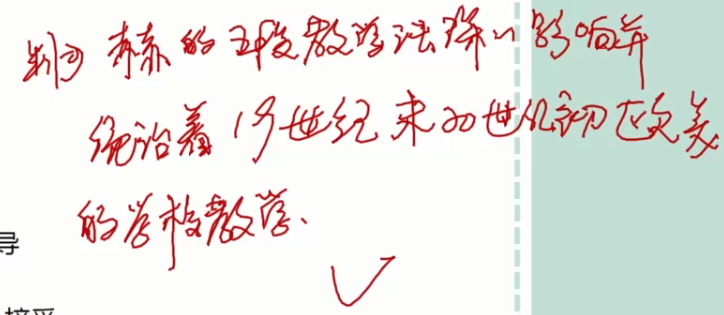 判① 赫赤的五段教学法深深影响并
统治着19世纪末20世纪初欧美
的学校教学.
导
接受